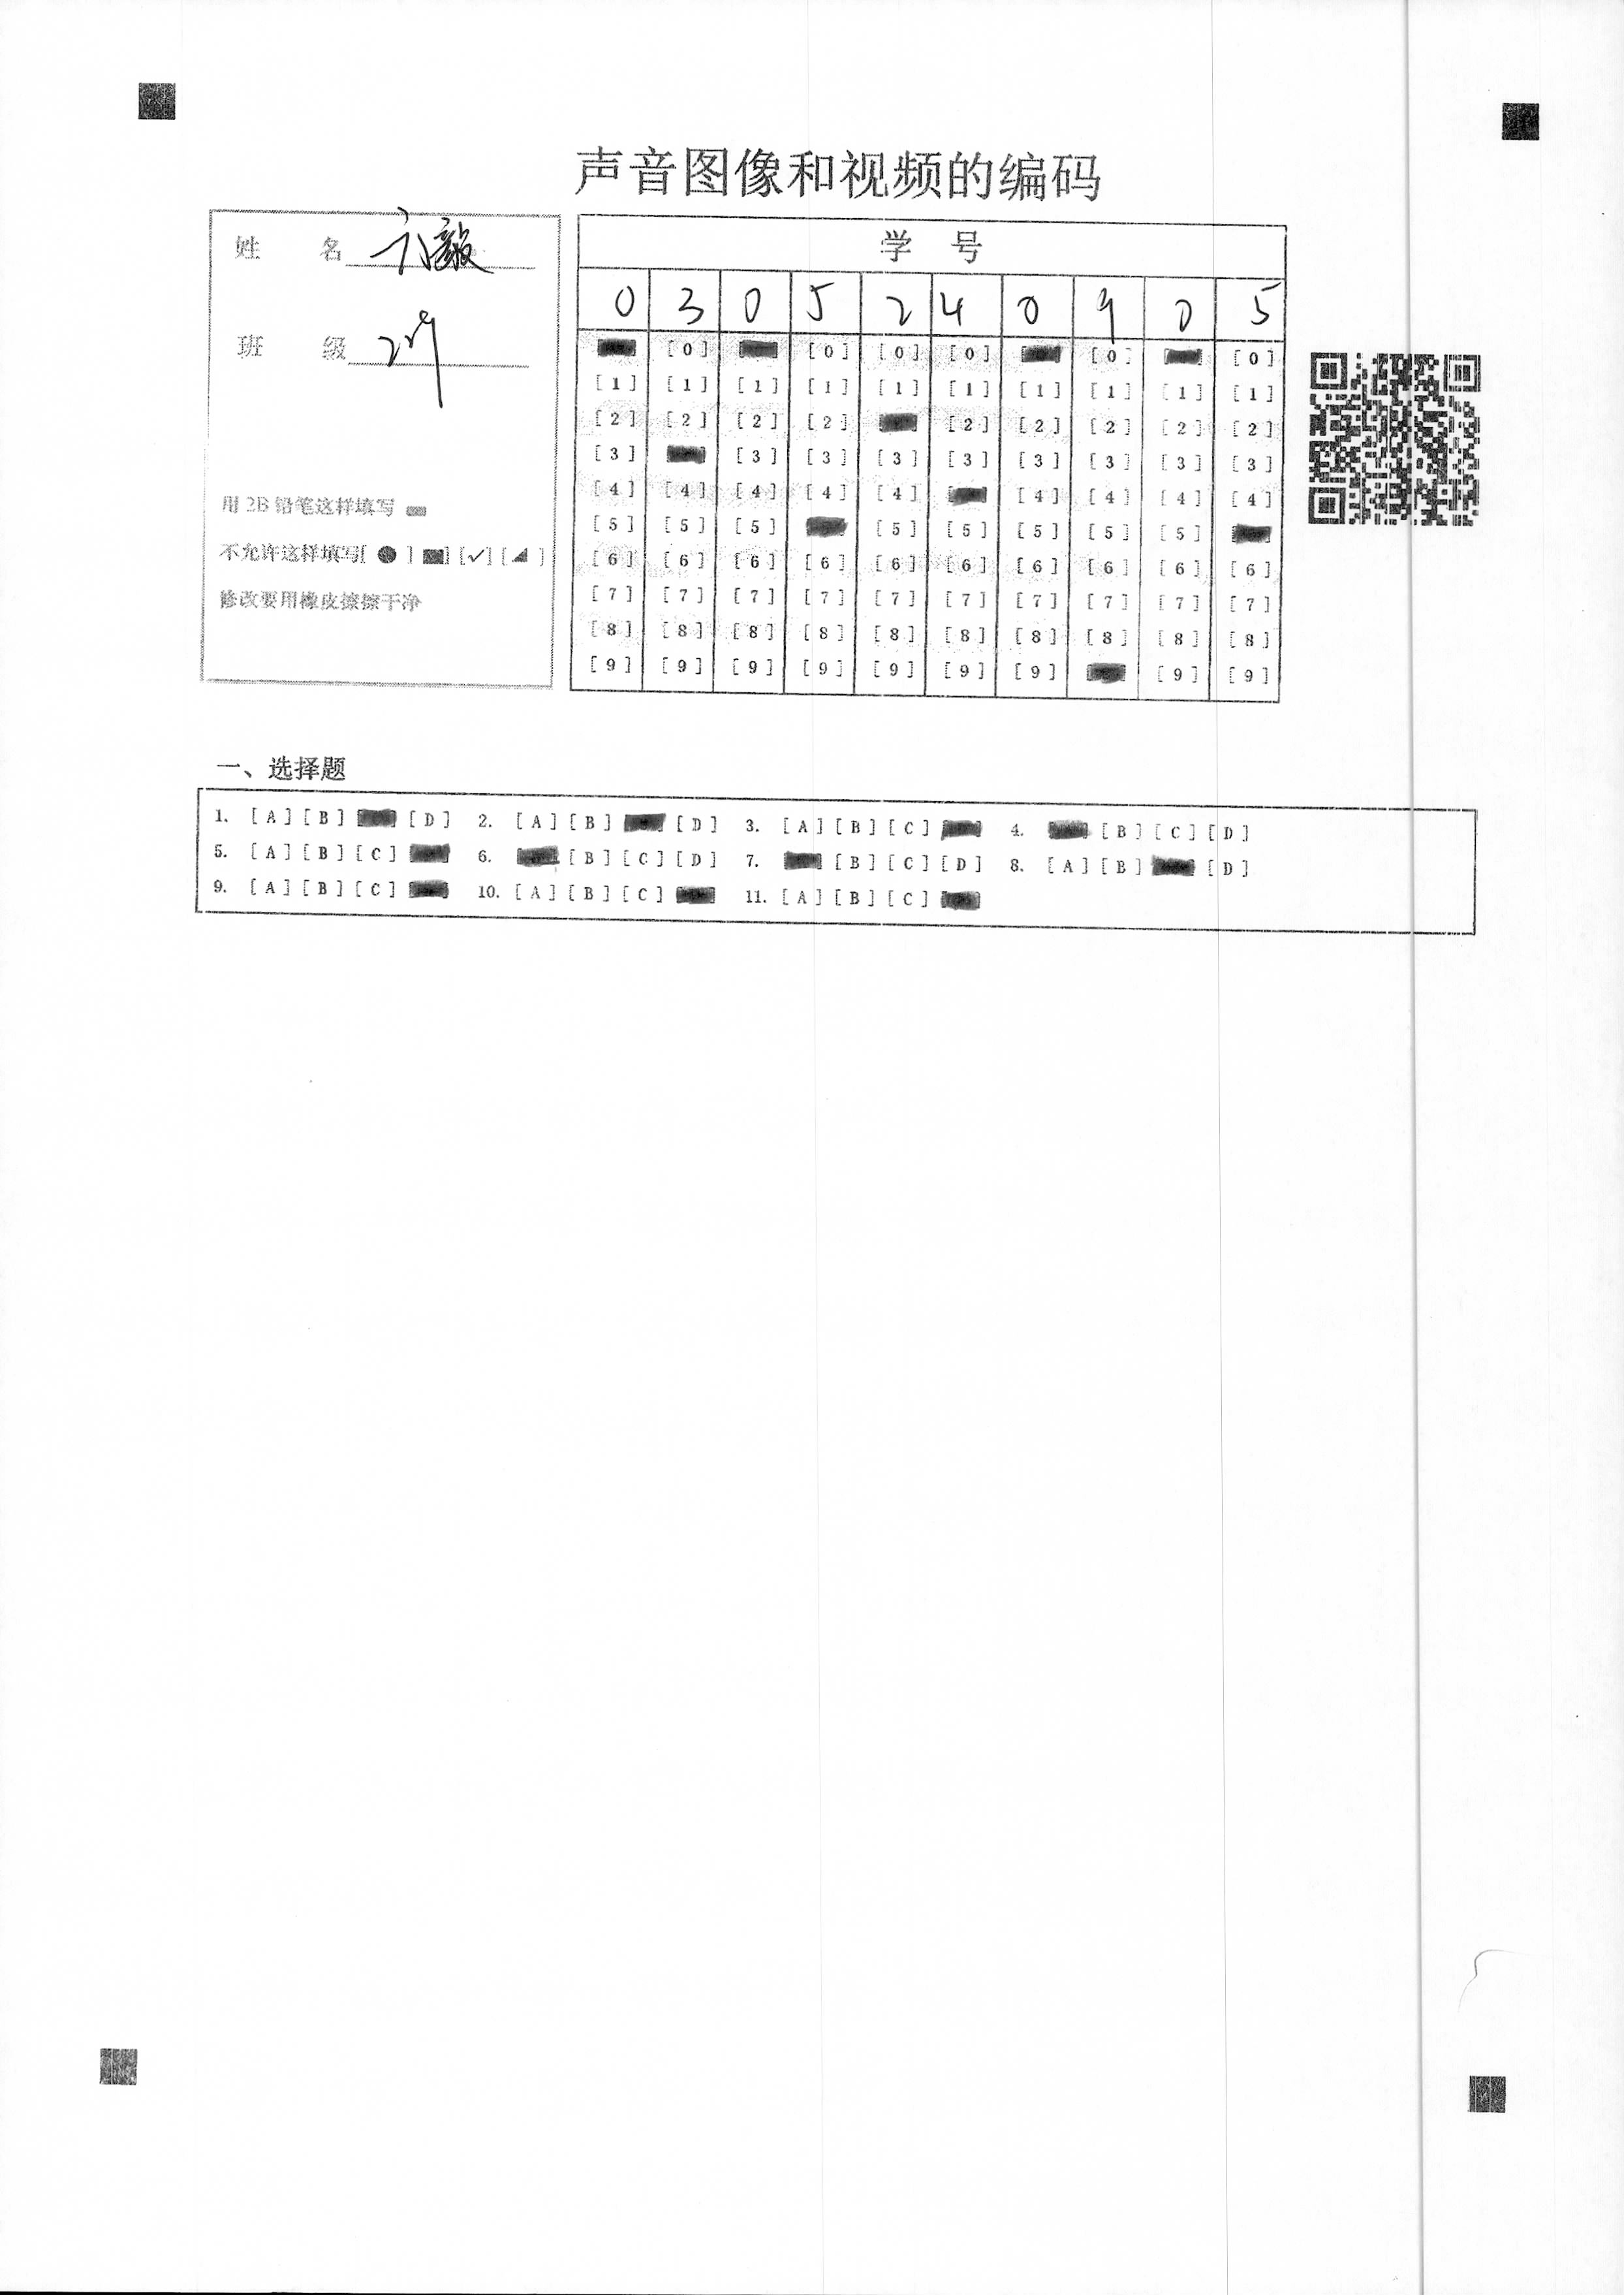 声音图像和视频的编码
姓 名
班 级
用 2B 铅笔这样填写
不允许这样填写[ ● ] [■] [✓] [◢ ]
修改要用橡皮擦擦干净
学 号
0 3 0 5 2 4 0 9 0 5
[0] [0] [0] [0] [0] [0]
[1] [1] [1] [1] [1] [1] [1] [1] [1] [1]
[2] [2] [2] [2] [2] [2] [2] [2] [2]
[3] [3] [3] [3] [3] [3] [3] [3] [3]
[4] [4] [4] [4] [4] [4] [4] [4] [4]
[5] [5] [5] [5] [5] [5] [5] [5]
[6] [6] [6] [6] [6] [6] [6] [6] [6] [6]
[7] [7] [7] [7] [7] [7] [7] [7] [7] [7]
[8] [8] [8] [8] [8] [8] [8] [8] [8] [8]
[9] [9] [9] [9] [9] [9] [9] [9] [9]
一、选择题
1. [A] [B] [D] 2. [A] [B] [D] 3. [A] [B] [C] 4. [B] [C] [D]
5. [A] [B] [C] 6. [B] [C] [D] 7. [B] [C] [D] 8. [A] [B] [D]
9. [A] [B] [C] 10. [A] [B] [C] 11. [A] [B] [C]